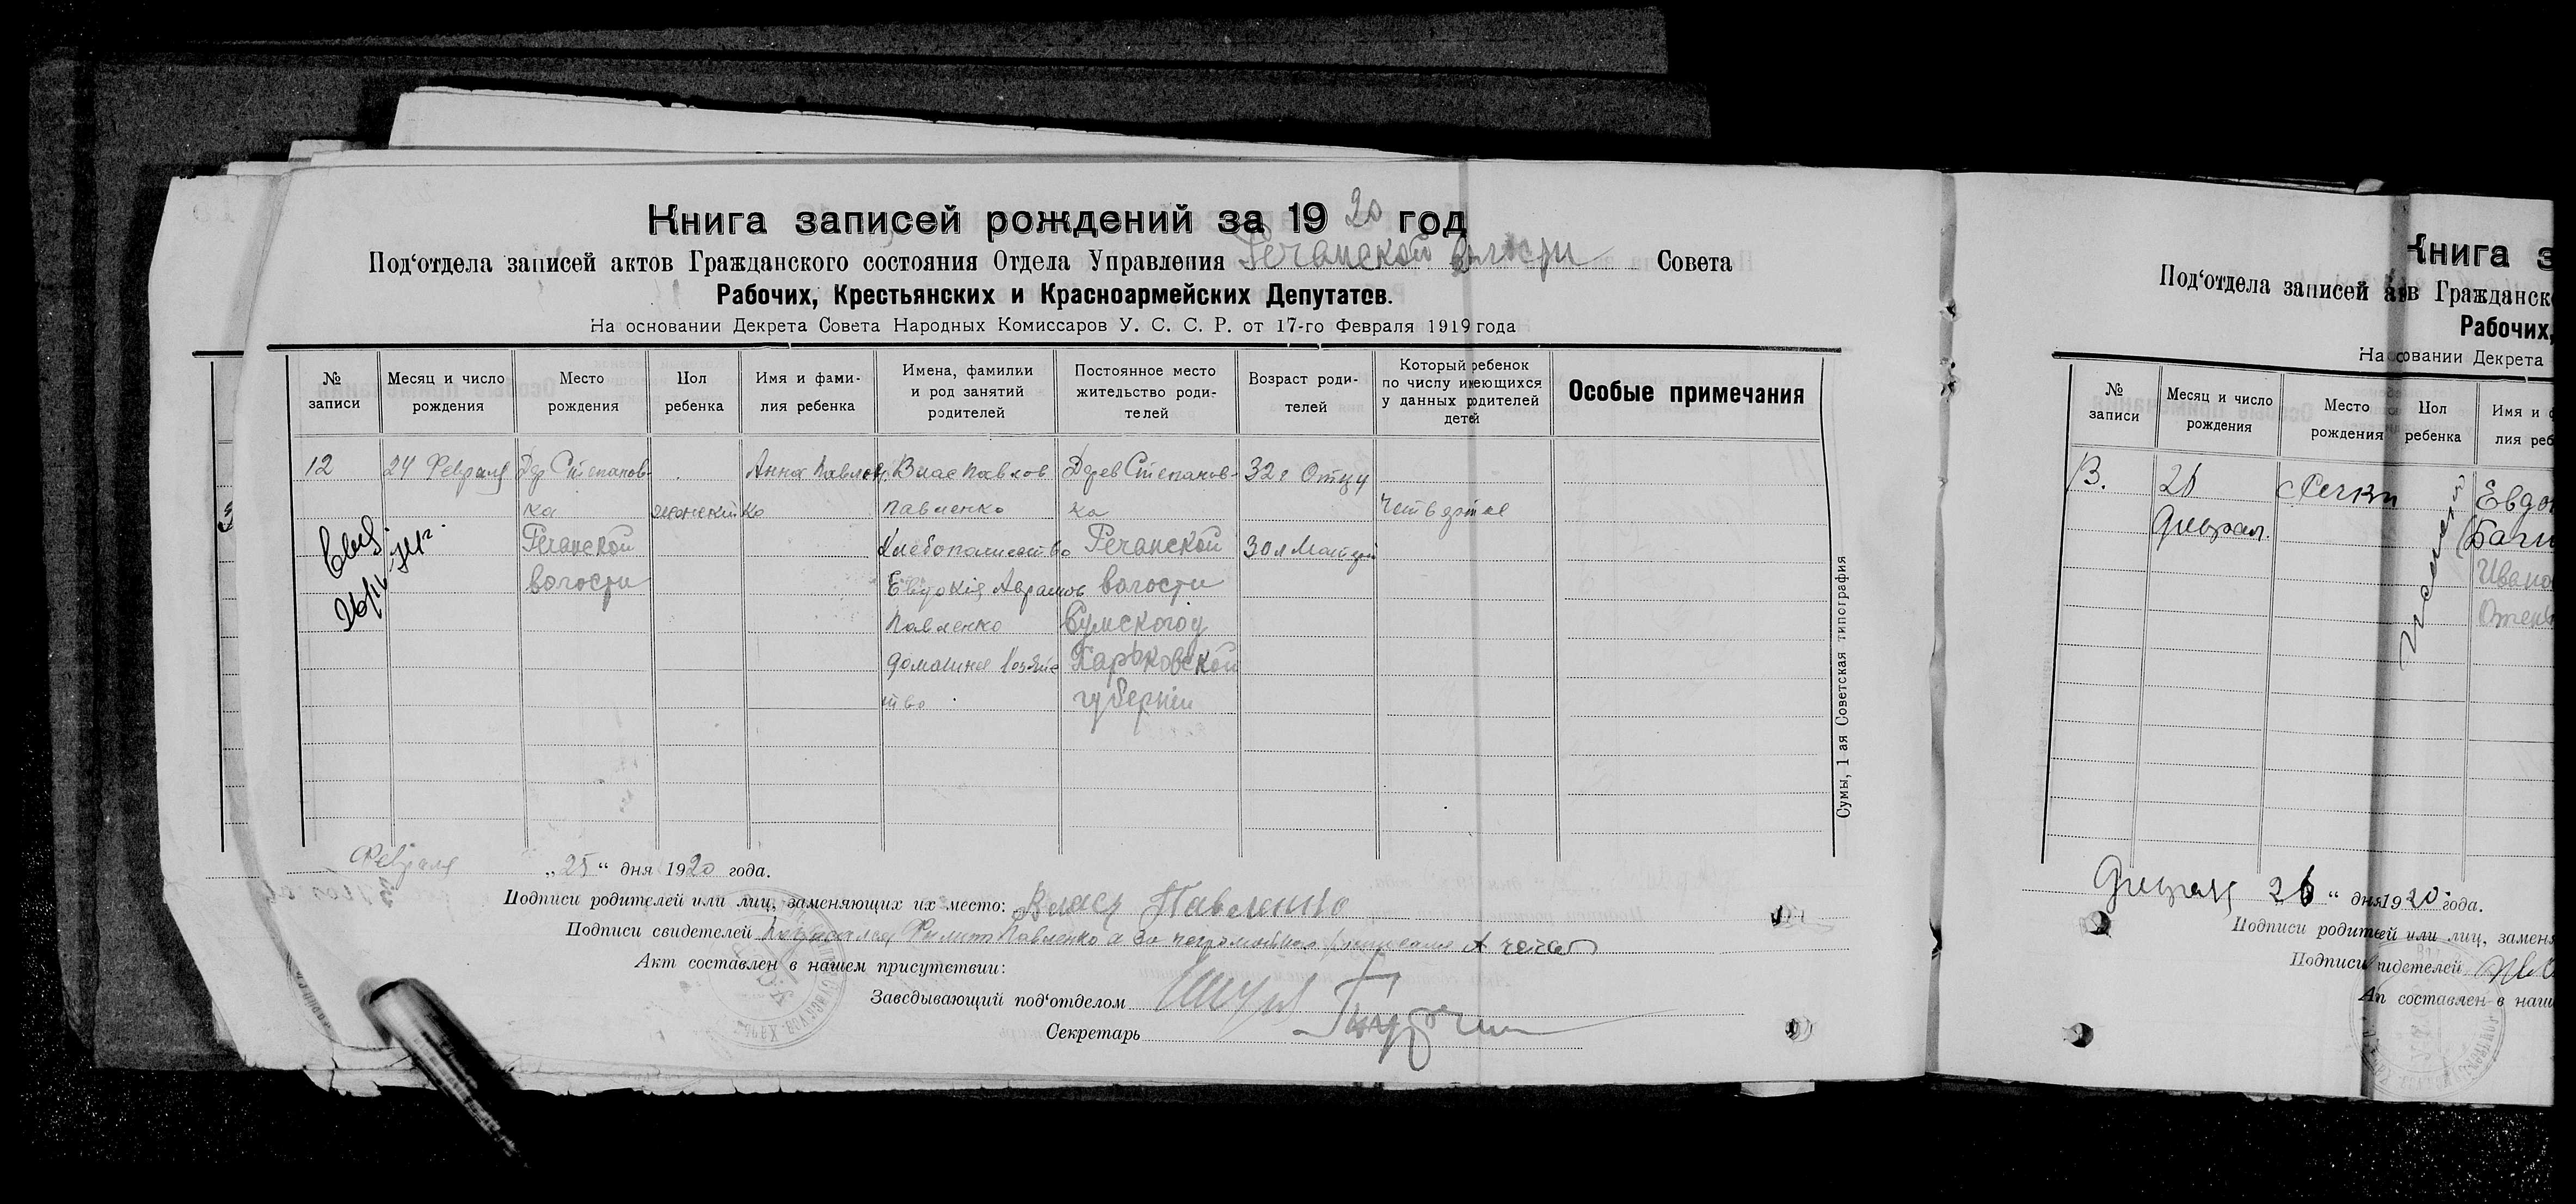 Книга записей рождений за 1920 год
Под'отдела записей актов Гражданского состояния Отдела Управления Речанской волости Совета
Рабочих, Крестьянских и Красноармейских Депутатов.
На основании Декрета Совета Народных Комиссаров У. С. С. Р. от 17-го Февраля 1919 года
№ записи
Месяц и число рождения
Место рождения
Пол ребенка
Имя и фамилия ребенка
Имена, фамилии и род занятий родителей
Постоянное место жительство родителей
Возраст родителей
Который ребенок по числу имеющихся у данных родителей детей
Особые примечания
12
24 Февраля
Дер Степанов-
ка
Речанской
волости
женский
Анна Павлен
ко
Влас Павлов
Павленко
Хлебопашество
Евдокія Аврамов
Павленко
домашнее хозяйс
тво
Дерев Степанов-
ка
Речанской
волости
Сумского у
Харьковской
губерніи
32 г Отцу
30 л Матери
Четвертое
26/II
Сумы, 1-ая Советская типография
Февраля „25“ дня 1920 года.
Подписи родителей или лиц, заменяющих их место: Власъ Павленко
Подписи свидетелей Филипп Павленко а за неграмотного
Акт составлен в нашем присутствии:
Заведывающий под'отделом
Секретарь
Книга з
Под'отдела записей ав Гражданск
Рабочих,
На совании Декрета
№ записи
Месяц и число рождения
Место рождения
Пол ребенка
Имя и ф
лия реб
13.
26
Феврал.
с Речки
женский
Евдо
Ивано
Февраля 26 “ дня 1920 года.
Подписи родителей или лиц, заменя
Подписи идетелей
Ап составлен в наше